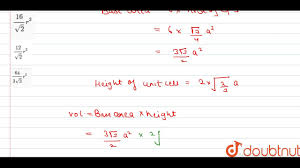 16/√2 r³
12/√2 r³
64/3√3 r³
= 6 × √3/4 a²
= 3√3/2 a²
Height of unit cell = 2×√2/3 a
vol = Base area × height
= 3√3/2 a² × 2√
doubtnut